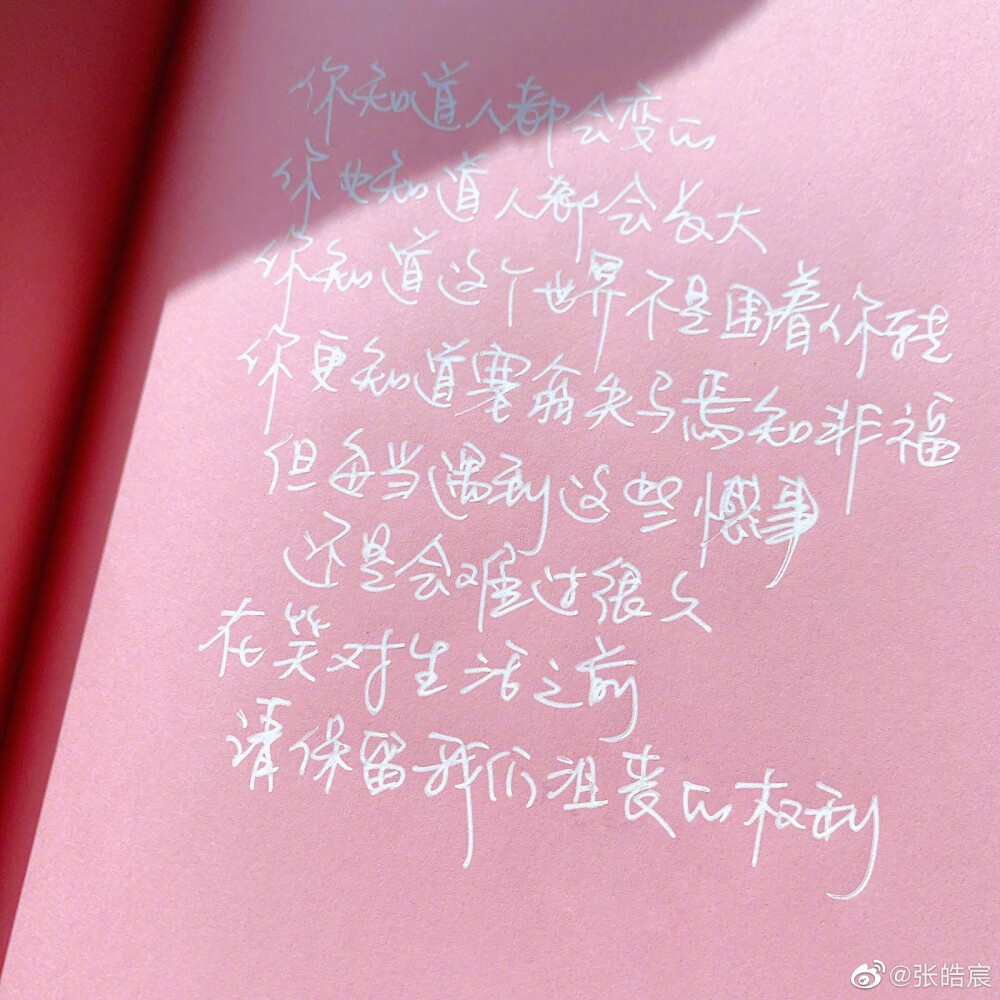 你知道人都会变的
你也知道人都会长大
你知道这个世界不是围着你转
你更知道塞翁失马焉知非福
但每当遇到这些懊事
还是会难过很久
在笑对生活之前
请保留我们沮丧的权利
@张皓宸